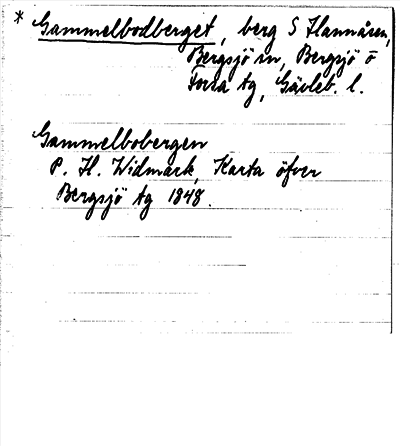 * Gammelbodberget, berg S Hannåsen,
Bergsjö sn, Bergsjö o
Forsa tg, Gävleb. l.
Gammelbobergen
P. H. Widmark, Karta öfver
Bergsjö tg 1848.